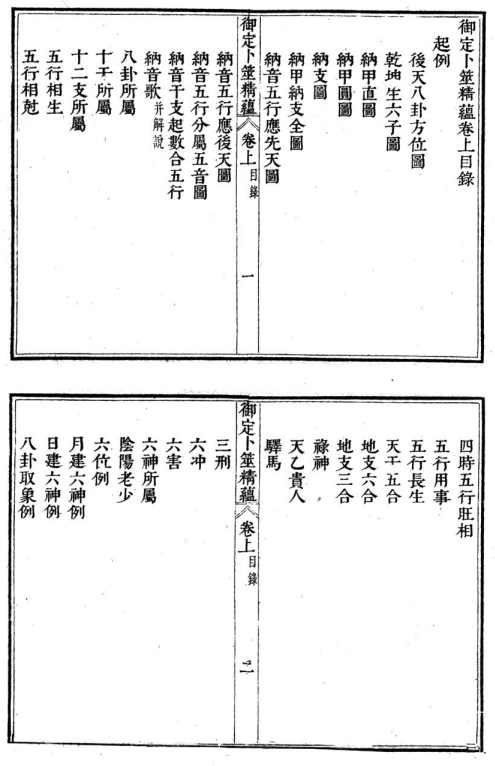 御定卜筮精蘊卷上目錄
起例
後天八卦方位圖
乾坤生六子圖
納甲直圖
納甲圓圖
納支圖
納甲納支全圖
納音五行應先天圖
御定卜筮精蘊
卷上
目錄
一
納音五行應後天圖
納音五行分屬五音圖
納音干支起數合五行
納音歌并解說
八卦所屬
十干所屬
十二支所屬
五行相生
五行相尅
四時五行旺相
五行用事
五行長生
天干五合
地支六合
地支三合
祿神
天乙貴人
驛馬
御定卜筮精蘊
卷上
目錄
二
三刑
六冲
六害
六神所屬
陰陽老少
六位例
月建六神例
日建六神例
八卦取象例